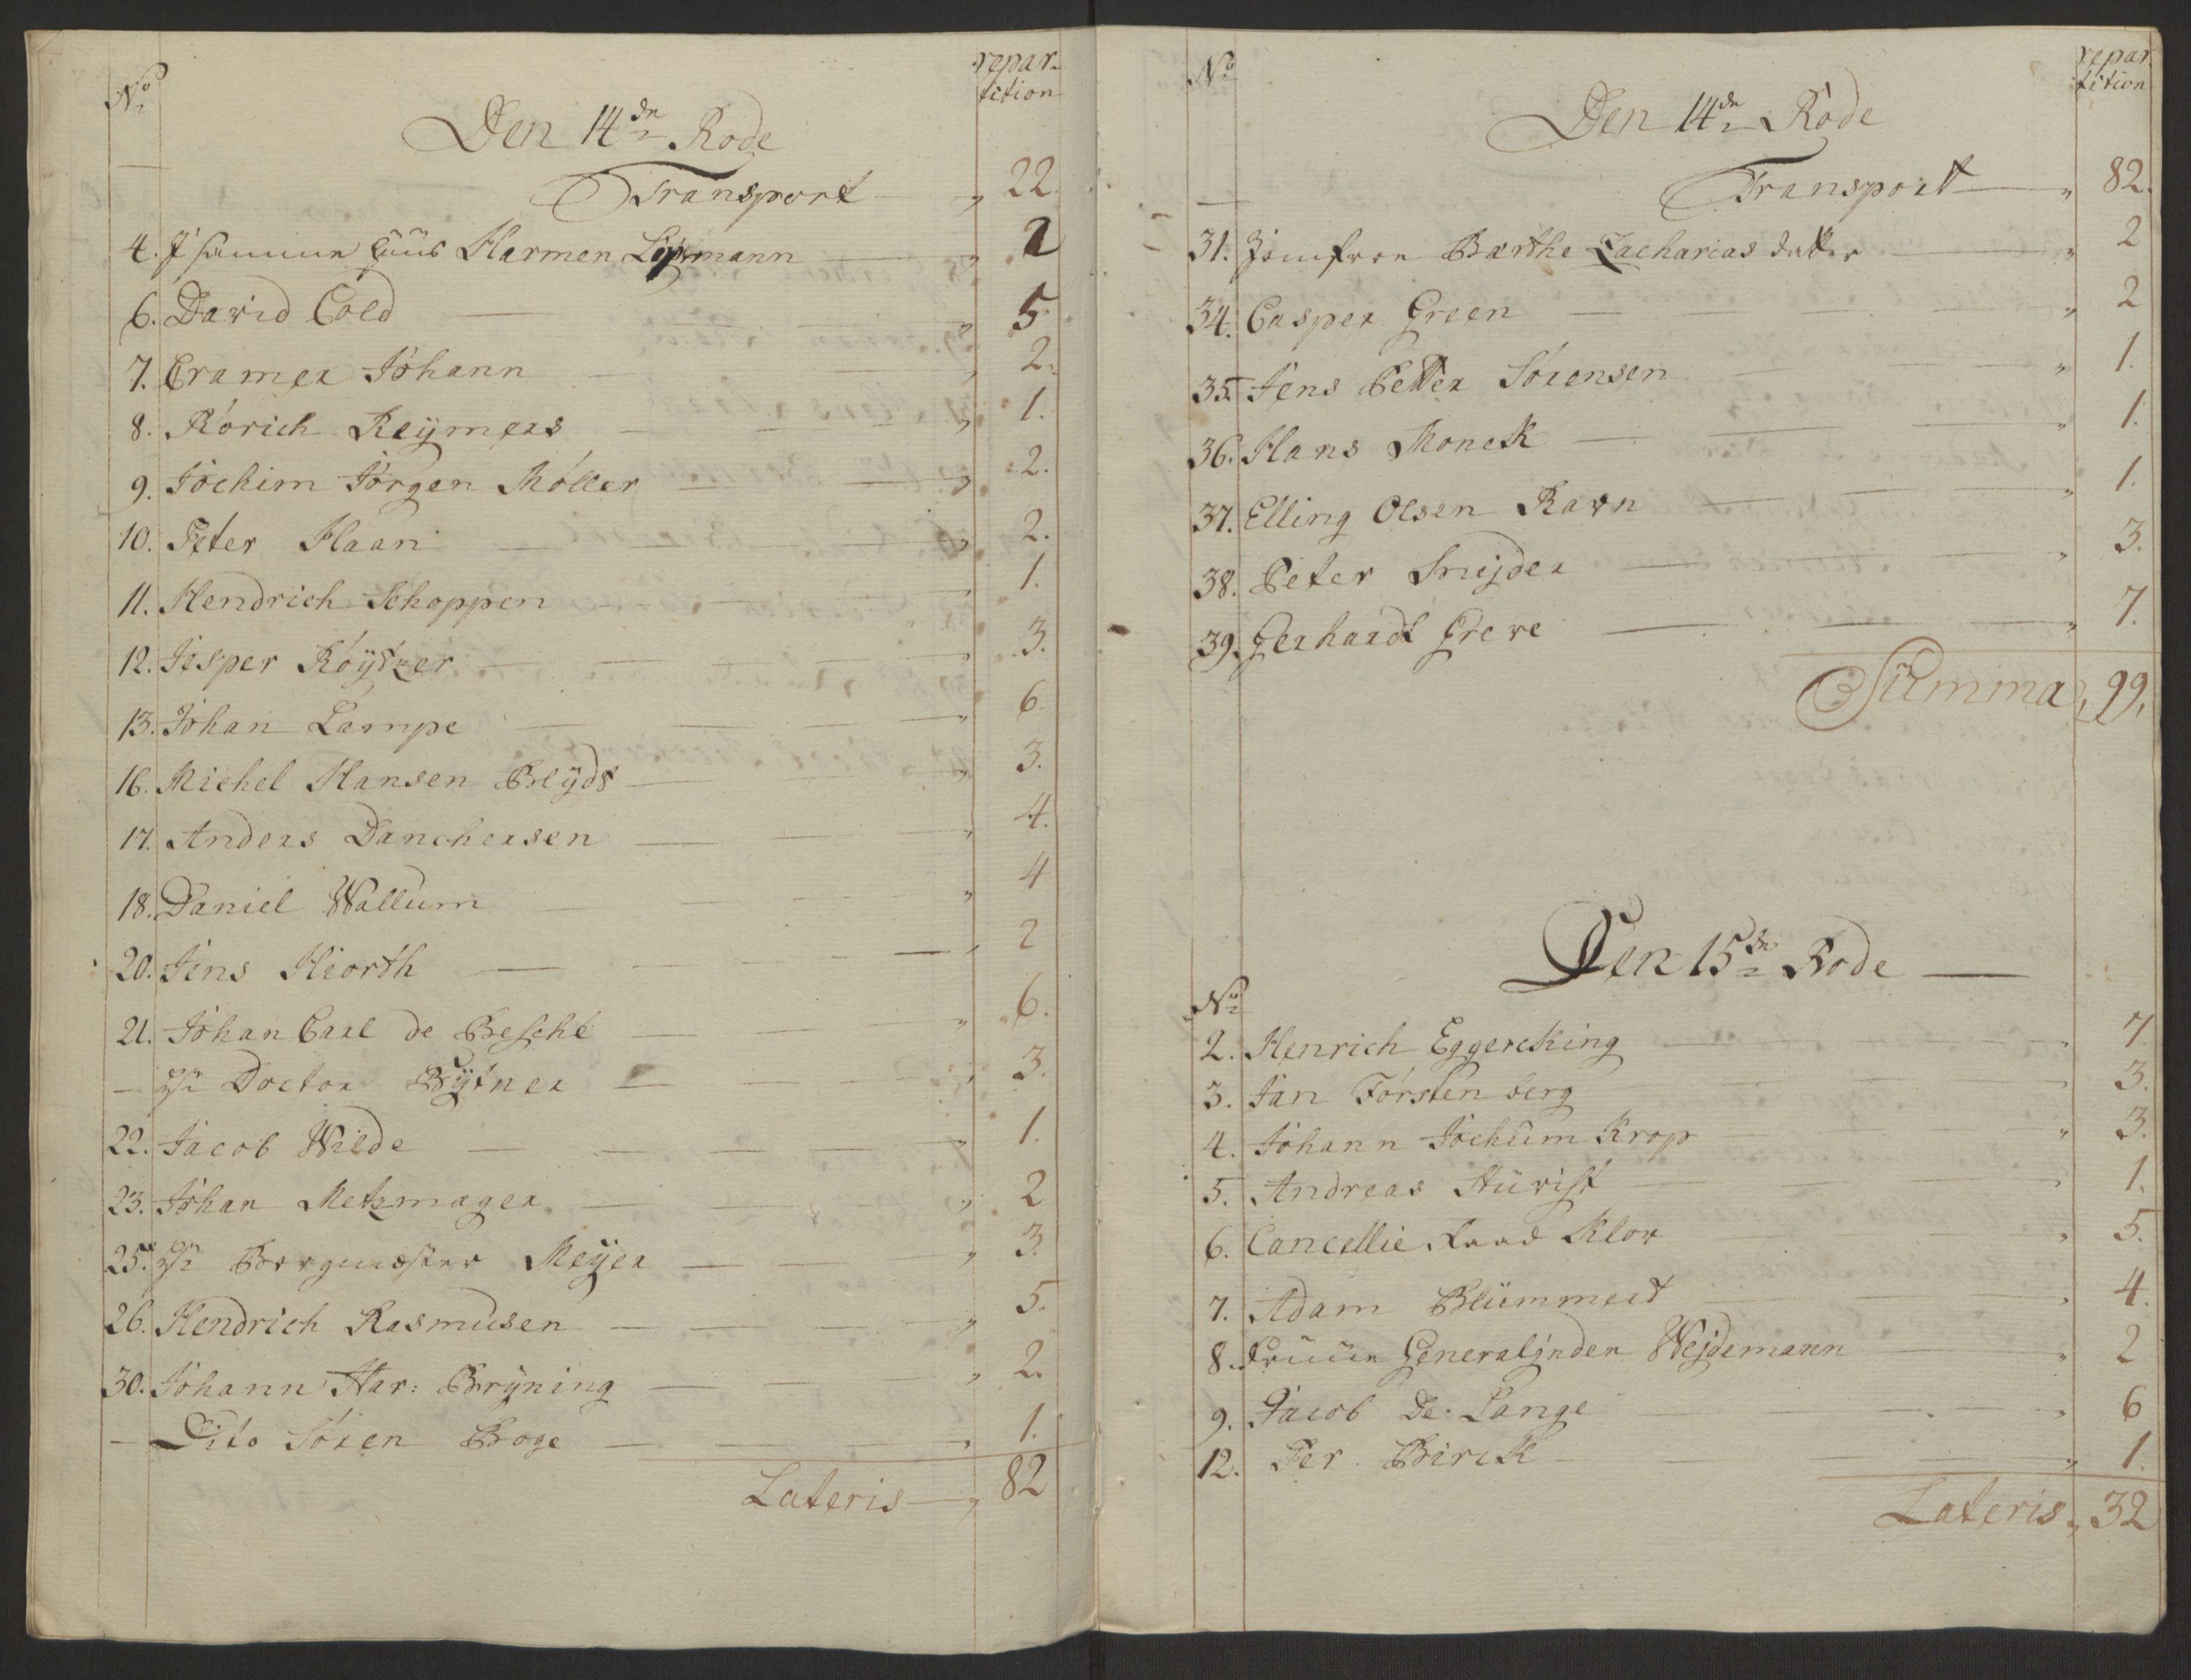 No
repar-
tition
Den 14de Rode
Transport — " 22.
4. J samme huus Harmen Lipmann — " 2
6. David Cold — " 5.
7. Cramer Johann — " 2.
8. Rörich Reÿmers — " 1.
9. Jochim Jörgen Möller — " 2.
10. Peter Haan — " 2.
11. Hendrich Schoppen — " 1.
12. Jesper Röÿtzer — " 3.
13. Johan Lampe — " 6.
16. Michel Hansen Blÿds — " 3.
17. Anders Danchersen — " 4.
18. Daniel Wallum — " 4
20. Jens Hiorth — " 2
21. Johan Carl de Besche — " 6.
— Hr Doctor Bÿtner — " 3.
22. Jacob Wilde — " 1.
23. Johan Metzmager — " 2
25. Hr Borgmester Meÿer — " 3.
26. Hendrich Rasmusen — " 5.
30. Johann Har: Brÿning — " 2.
— Dito Sören Boge — " 1.
Lateris — " 82
No
repar
tition
Den 14de Rode
Transport — " 82.
31. Jomfrue Barthe Zacharias datter — " 2
34. Casper Green — " 2
35. Jens Petter Sörensen — " 1.
36. Hans Monck — " 1.
37. Elling Olsen Ravn — " 1.
38. Peter Snijder — " 3.
39. Gerhardt Greve — " 7.
Summa " 99.
Den 15de Rode —
No
2. Henrich Eggercking — " 7
3. Jan Törstenberg — " 3.
4. Johann Jochum Krop — " 3.
5. Andreas Hüvist — " 1.
6. Cancellie Raad Klow — " 5.
7. Adam Blümmert — " 4.
8. Fruue Generalinden Wejdemann — " 2
9. Jacob De Lange — " 6
12. Per Birck — " 1.
Lateris " 32